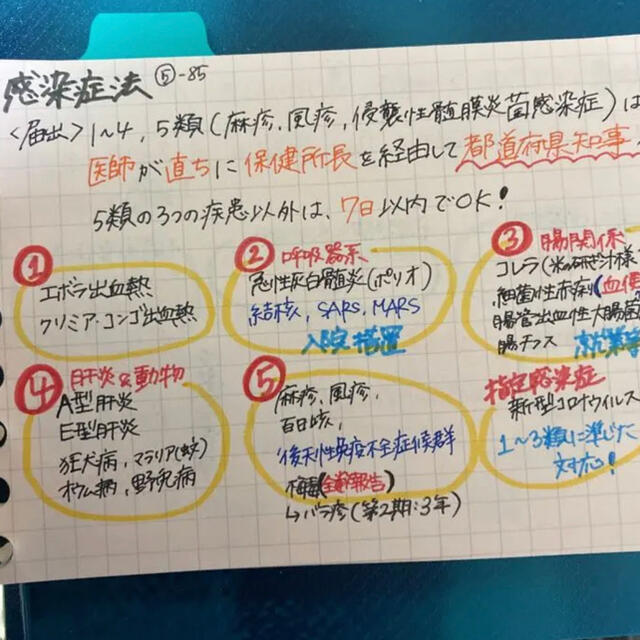 感染症法 ⑤-85
<届出> 1〜4, 5類(麻疹, 風疹, 侵襲性髄膜炎菌感染症)は
医師が直ちに保健所長を経由して都道府県知事
5類の3つの疾患以外は、7日以内でOK!
①
エボラ出血熱
クリミア・コンゴ出血熱
② 呼吸器系
急性灰白髄炎(ポリオ)
結核, SARS, MARS
入院措置
③ 腸関係
コレラ(米の研ぎ汁様
細菌性赤痢(血便
腸管出血性大腸菌
腸チフス 就業
④ 肝炎&動物
A型肝炎
E型肝炎
狂犬病, マラリア(蚊)
オウム病, 野兎病
⑤
麻疹, 風疹,
百日咳,
後天性免疫不全症候群
梅毒(全数報告)
↳バラ疹(第2期:3年)
指定感染症
新型コロナウィルス
1〜3類に準じた
対応!